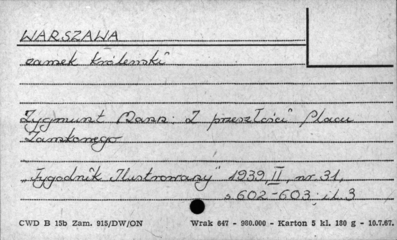 WARSZAWA
zamek królewski
Zygmunt Mann: Z przeszłości Placu
Zamkowego
„Tygodnik Ilustrowany" 1939, II, nr 31,
s. 602-603; il. 3
CWD B 15b Zam. 915/DW/ON Wrak 647 - 900.000 - Karton 5 kl. 180 g - 10.7.67.